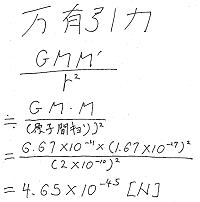 万有引力
GMM'
r²
≒ GM・M
(原子間キョリ)²
= 6.67×10⁻¹¹×(1.67×10⁻²⁷)²
(2×10⁻¹⁰)²
= 4.65×10⁻⁴⁵ [N]